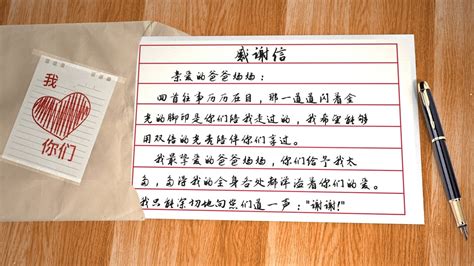 我
你们
感谢信
亲爱的爸爸妈妈：
四首往事历历在目，那一道道闪着金
光的脚印是你们陪我走过的，我希望能够
用双倍的光亮陪伴你们享过。
我最挚爱的爸爸妈妈，你们给予我太
多，多得我的全身各处都洋溢着你们的爱。
我只能深切地向您们道一声："谢谢！"